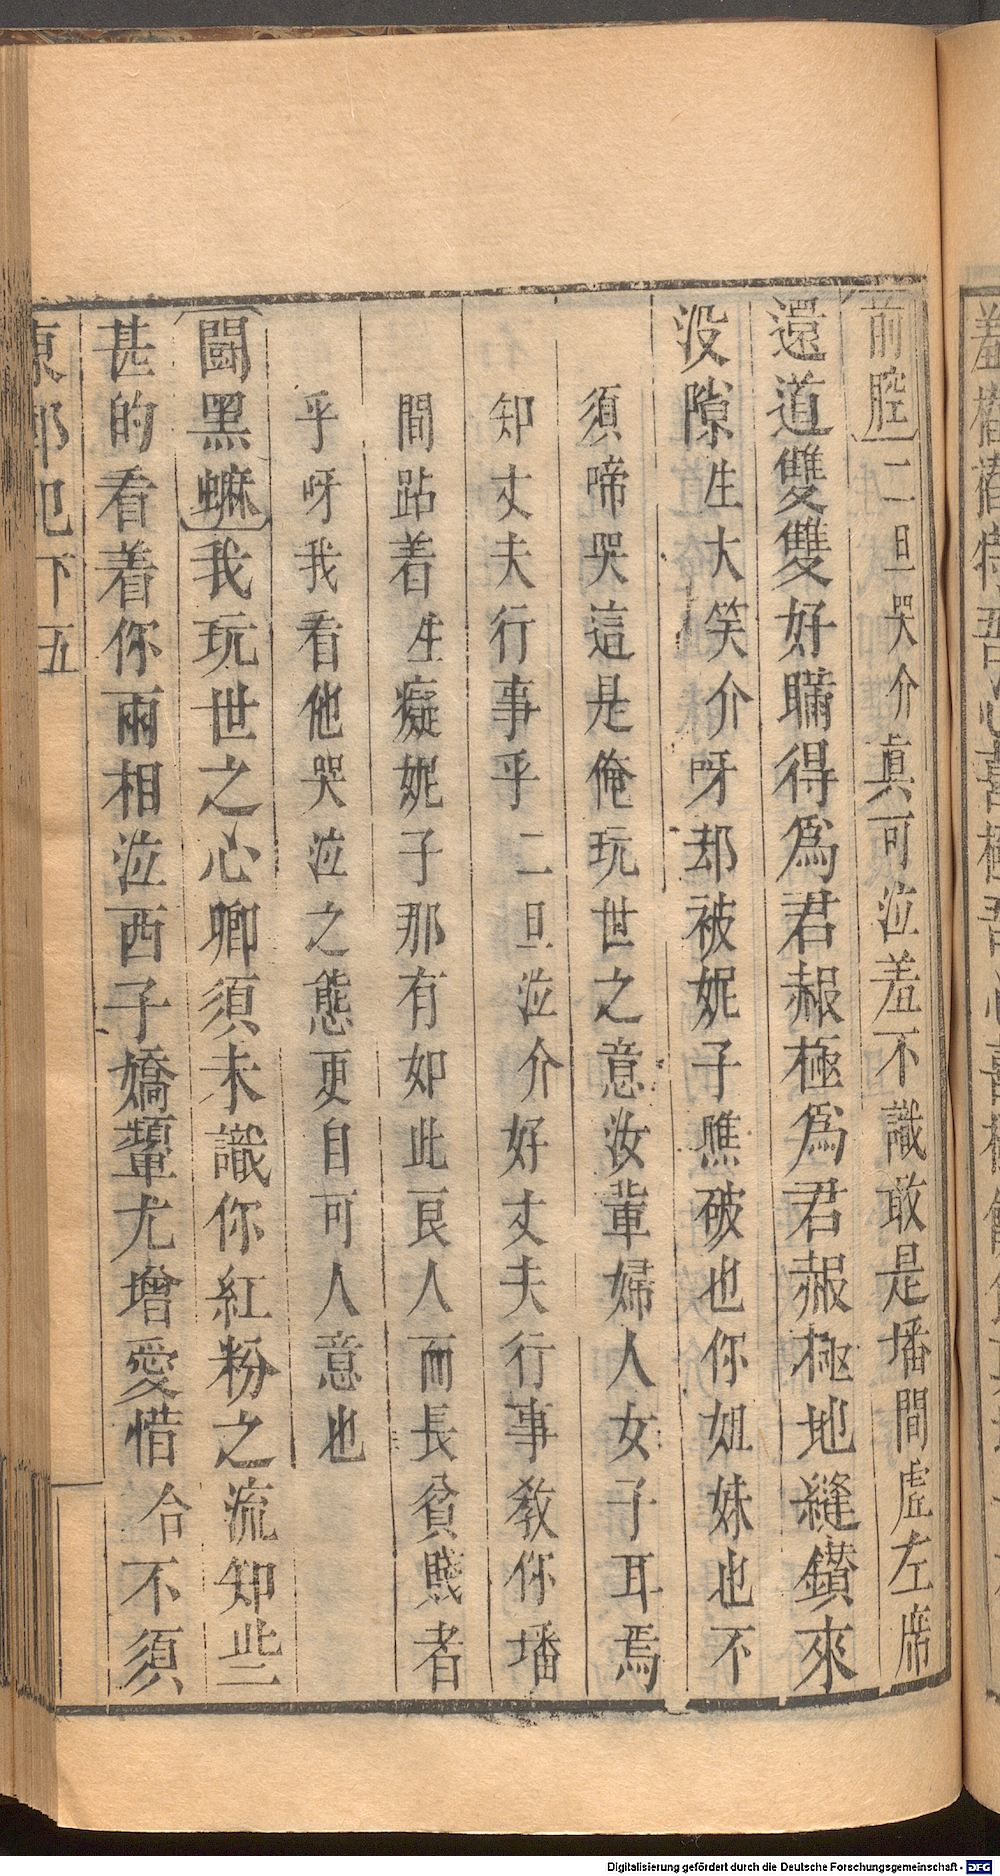 前腔二旦哭介眞可泣羞不識敢是墦間虛左席
還道雙雙好瞞得爲君赧極爲君赧極地縫鑚來
没隙生大笑介呀却被妮子瞧破也你姐妹也不
須啼哭這是俺玩世之意汝輩婦人女子耳焉
知丈夫行事乎二旦泣介好丈夫行事教你墦
間跕着生癡妮子那有如此良人而長貧賤者
乎呀我看他哭泣之態更自可人意也
闘黑蟆我玩世之心卿須未識你紅粉之流知些
甚的看着你兩相泣西子嬌顰尤增愛惜合不須
東郭記下五
Digitalisierung gefördert durch die Deutsche Forschungsgemeinschaft - DFG